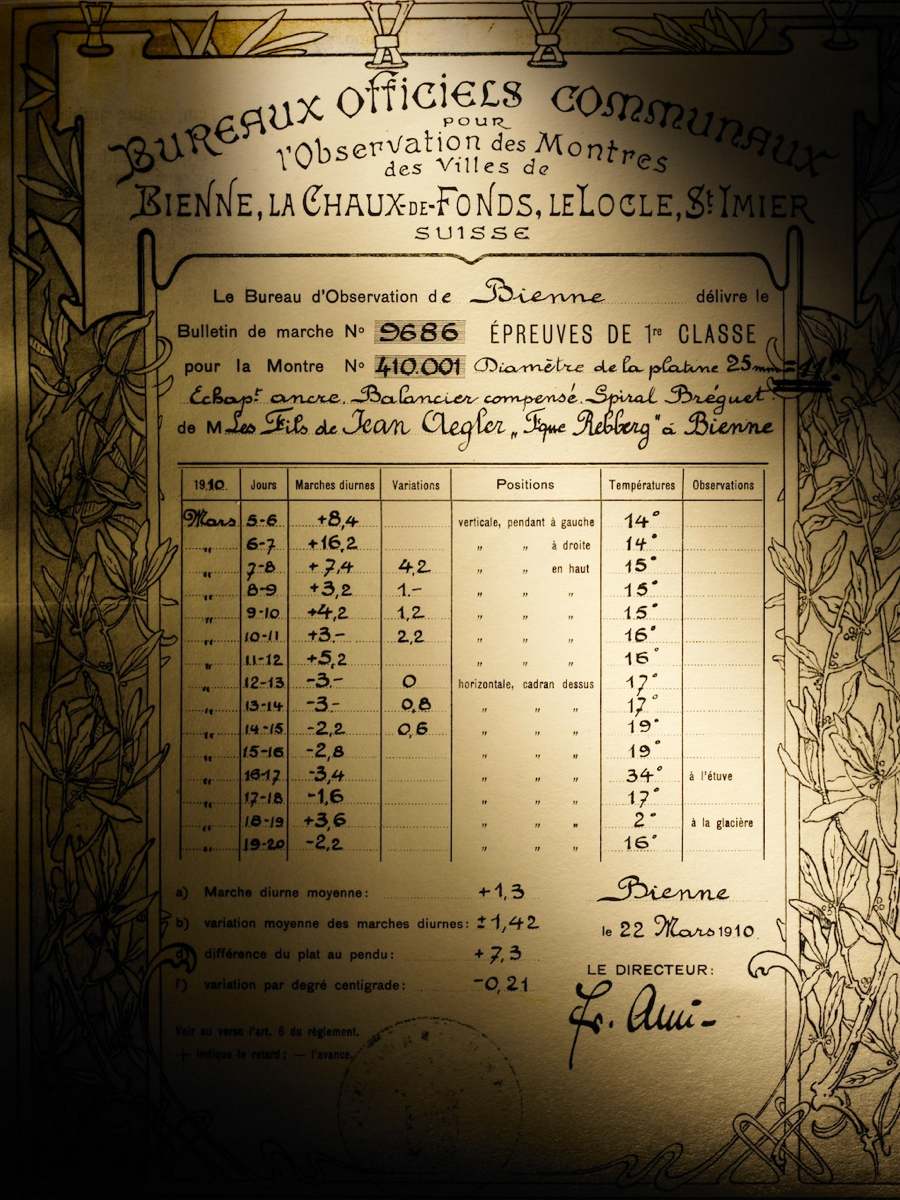 BUREAUX OFFICIELS COMMUNAUX
POUR
l'Observation des Montres
des Villes de
BIENNE, LA CHAUX-DE-FONDS, LE LOCLE, St IMIER
SUISSE
Le Bureau d'Observation de Bienne délivre le
Bulletin de marche No 9686 ÉPREUVES DE 1re CLASSE
pour la Montre No 410.001 Diamètre de la platine 25 mm = 11'''
Echapt ancre. Balancier compensé. Spiral Bréguet.
de M Les Fils de Jean Aegler „Fque Rebberg" à Bienne
1910. Jours Marches diurnes Variations Positions Températures Observations
Mars 5-6 +8,4 verticale, pendant à gauche 14°
" 6-7 +16,2 " " à droite 14°
" 7-8 +7,4 4,2 " " en haut 15°
" 8-9 +3,2 1.- " " " 15°
" 9-10 +4,2 1,2 " " " 15°
" 10-11 +3.- 2,2 " " " 16°
" 11-12 +5,2 " " " 16°
" 12-13 -3.- 0 horizontale, cadran dessus 17°
" 13-14 -3- 0,8 " " " 17°
" 14-15 -2,2 0,6 " " " 19°
" 15-16 -2,8 " " " 19°
" 16-17 -3,4 " " " 34° à l'étuve
" 17-18 -1,6 " " " 17°
" 18-19 +3,6 " " " 2° à la glacière
" 19-20 -2,2 " " " 16°
a) Marche diurne moyenne: +1,3
b) variation moyenne des marches diurnes: ±1,42
d) différence du plat au pendu: +7,3
f) variation par degré centigrade: -0,21
Bienne
le 22 Mars 1910.
LE DIRECTEUR:
Voir au verso l'art. 6 du règlement.
+ indique le retard; — l'avance.